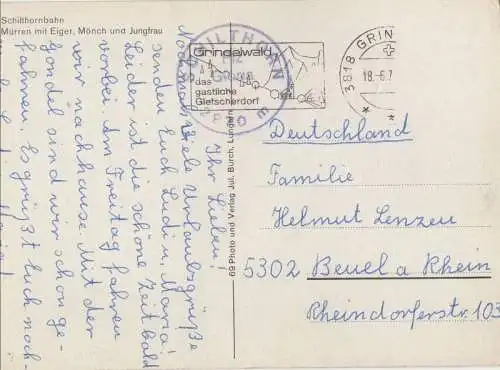 Schilthornbahn
Mürren mit Eiger, Mönch und Jungfrau
SCHILTHORN
Grindelwald
das
gastliche
Gletscherdorf
3818 GRIN
18.-6.7
Ihr Lieben!
Nochmals viele Urlaubsgrüße
senden Euch Ludi u. Maria!
Leider ist die schöne Zeit bald
vorbei. Am Freitag fahren
wir nachhause. Mit der
Gondel sind wir schon ge-
fahren. Es grüßt Euch noch-
69 Photo und Verlag Jul. Burch, Lungern
Deutschland
Familie
Helmut Lenzen
5302 Beuel a Rhein
Rheindorferstr. 103